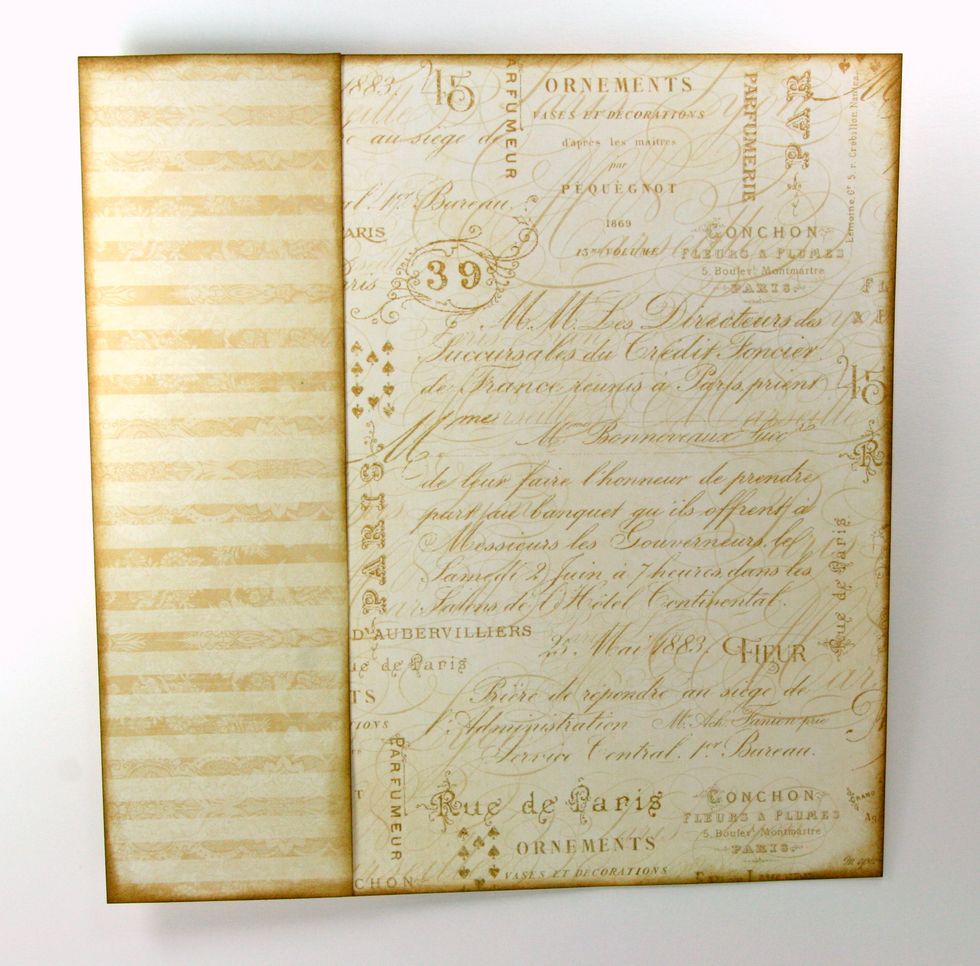 1883.
45
PARFUMEUR
ORNEMENTS
VASES ET DÉCORATIONS
d'après les maitres
par
PÉQUÈGNOT
1869
13me VOLUME
PARFUMERIE
PAR
Lemoine Gr 5. r. Crébillon Nantes.
au siège de
1er Bureau.
ARIS
39
aris
CONCHON
FLEURS & PLUMES
5. Boulevt Montmartre
PARIS.
M.M. Les Directeurs des
Succursales du Crédit Foncier
de France réunis à Paris, prient
Mme
Mme Bonneveaux
de leur faire l'honneur de prendre
part au banquet qu'ils offrent à
Messieurs les Gouverneurs, le
Samedi 2 Juin, à 7 heures, dans les
Salons de l'Hôtel Continental.
PARIS
45
R
Rue de Paris
D'AUBERVILLIERS
25 Mai 1883.
FLEUR
ue de Paris
Prière de répondre au siège de
TS
l'Administration M. Ach.
TIONS
Service Central. 1er Bureau.
PARFUMEUR
T
Rue de Paris
CONCHON
FLEURS & PLUMES
5. Boulevt Montmartre
PARIS.
GRAND
ORNEMENTS
VASES ET DÉCORATIONS
CHON